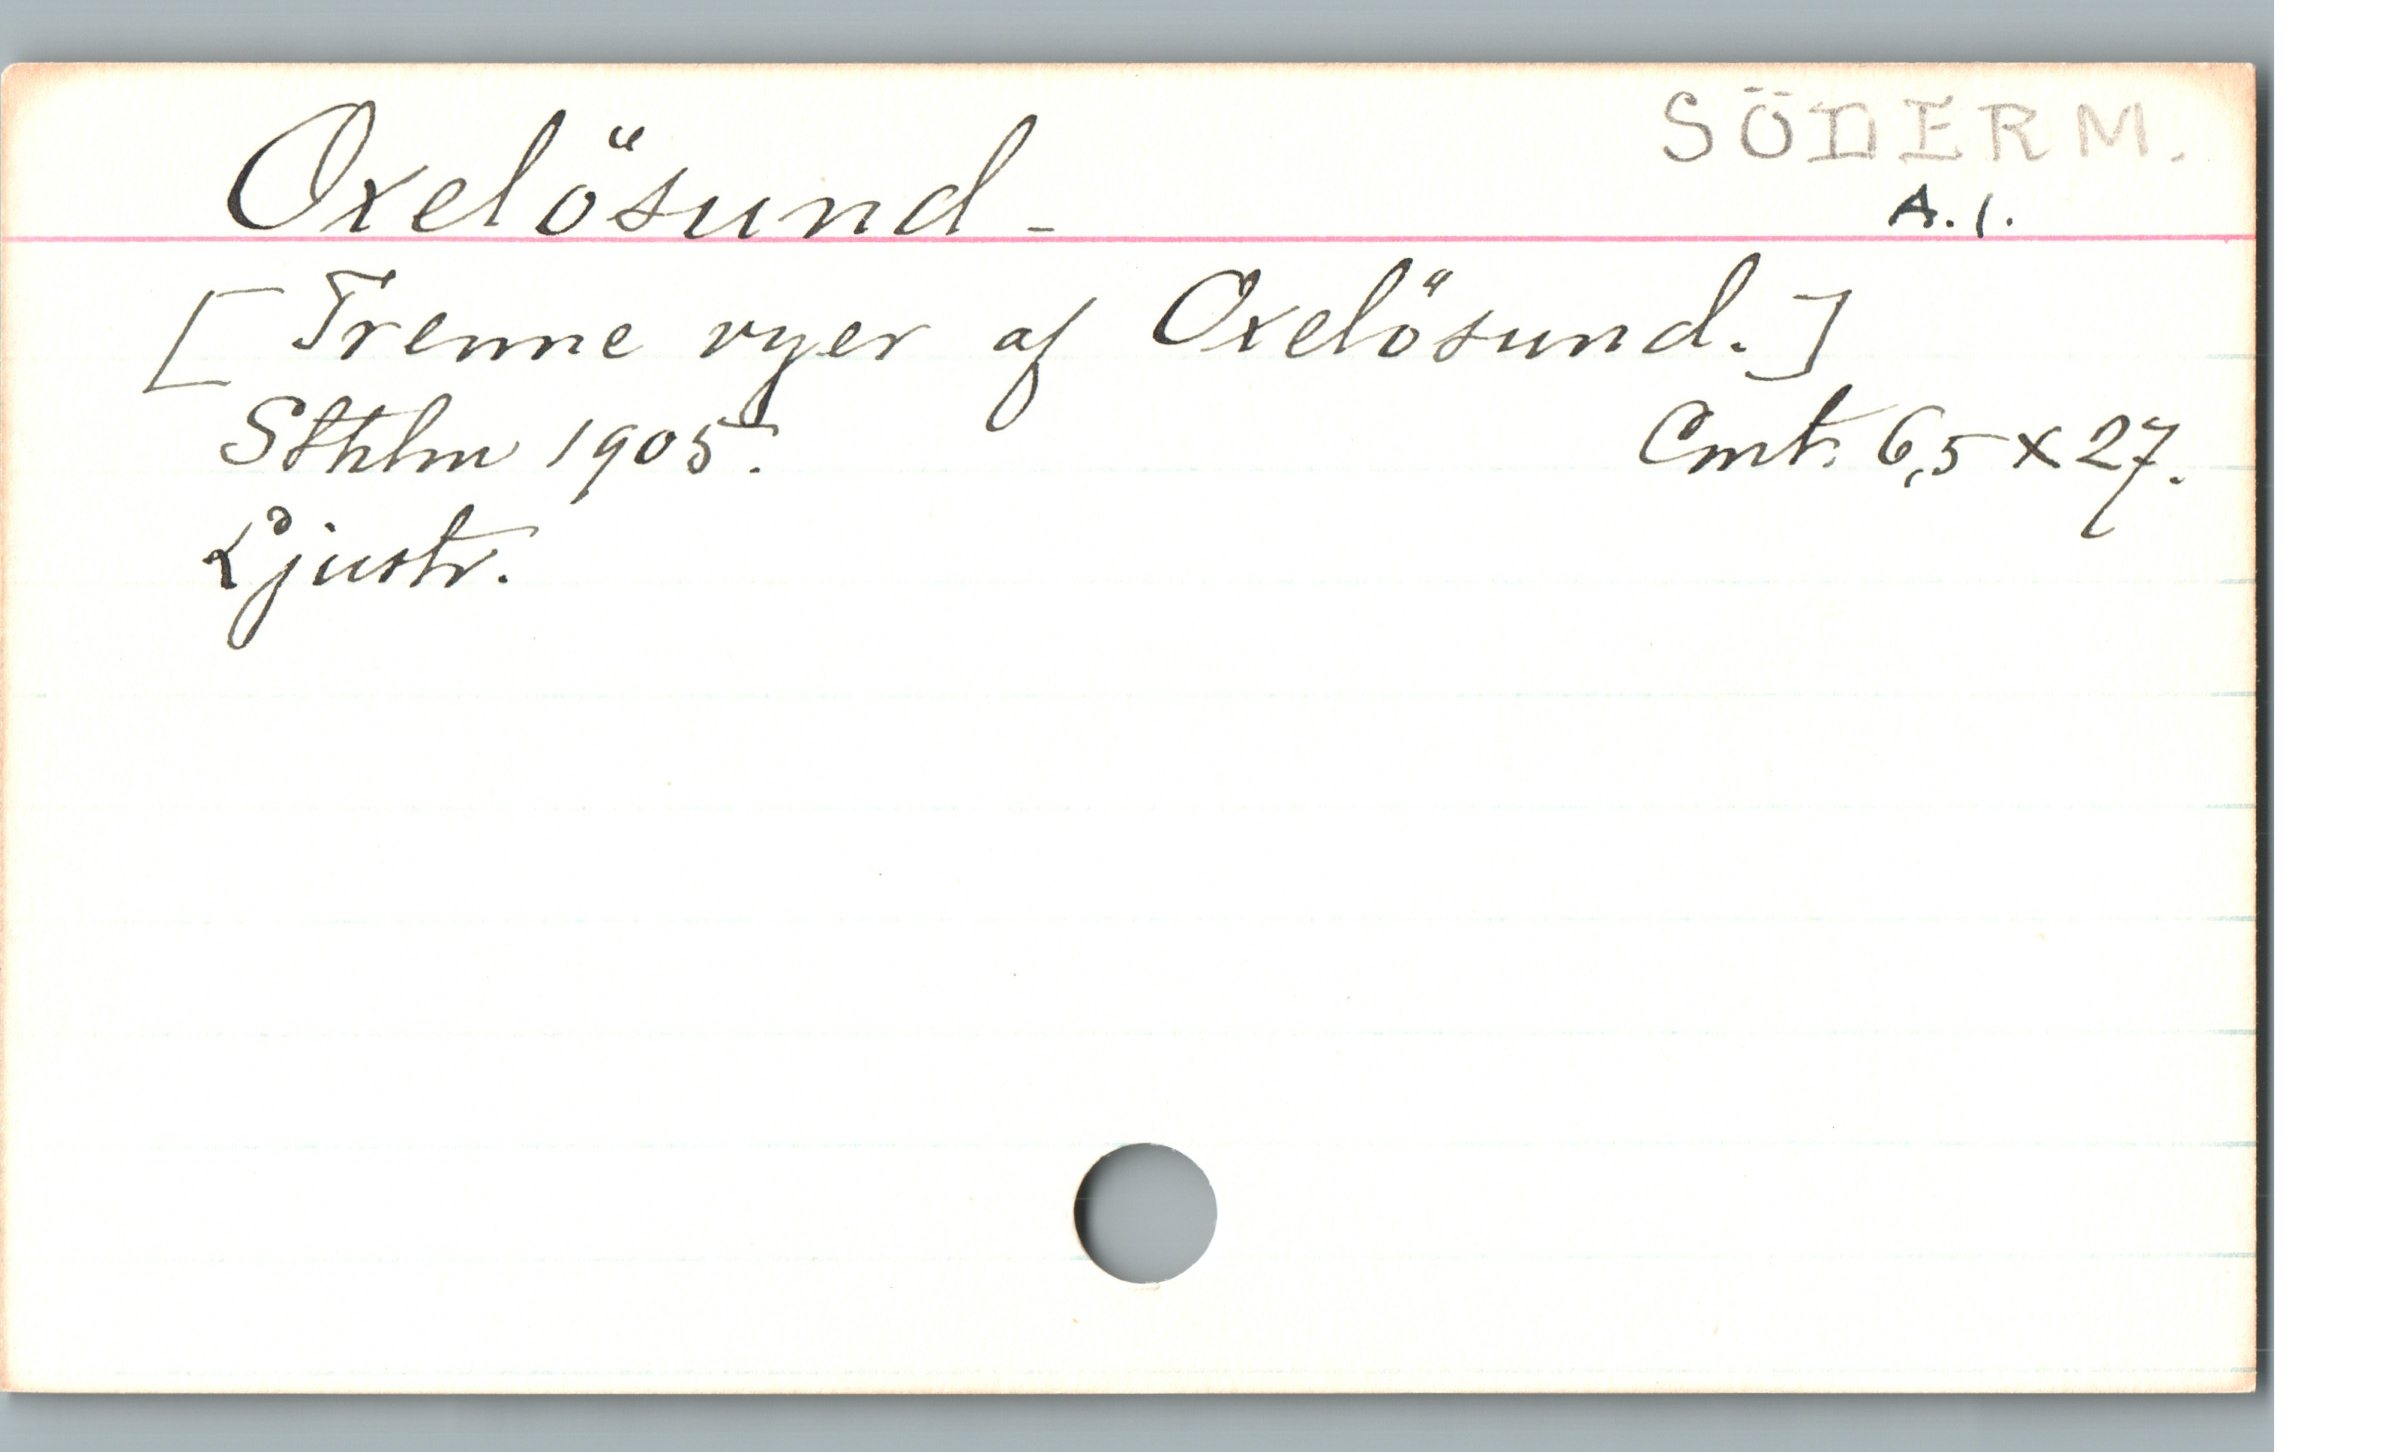 Oxelösund - SÖDERM.
A. 1.
[Trenne vyer af Oxelösund.]
Sthlm 1905. Cmt. 6,5 x 27.
Ljustr.